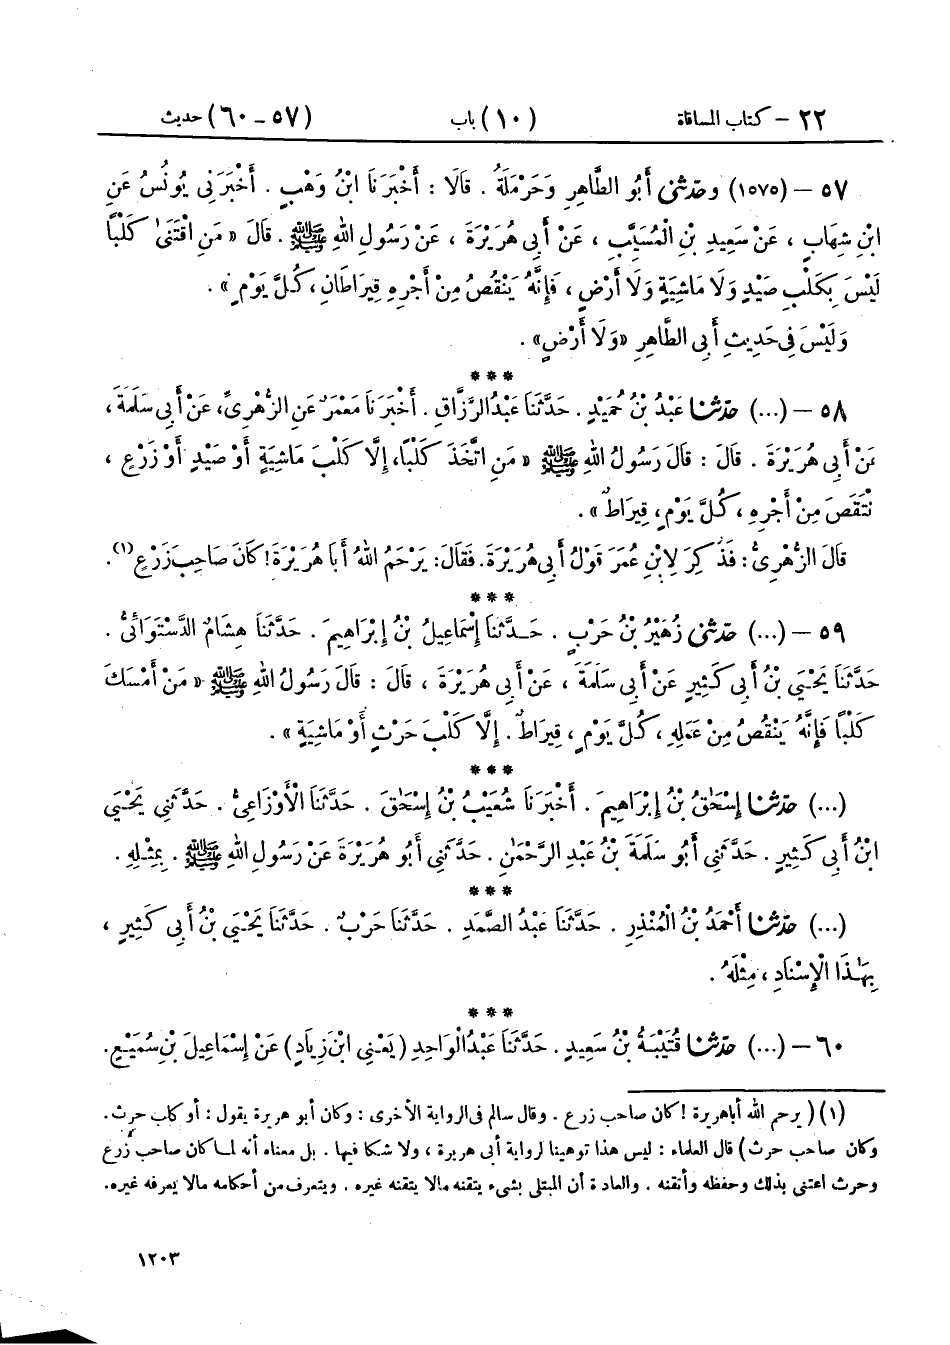 ٢٢ – كتاب المساقاة (١٠) باب (٥٧ – ٦٠) حديث
٥٧ – (١٥٧٥) وحَدَّثَنِي أَبُو الطَّاهِرِ وَحَرْمَلَةُ . قَالَا : أَخْبَرَنَا ابْنُ وَهْبٍ . أَخْبَرَنِي يُونُسُ عَنِ
ابْنِ شِهَابٍ ، عَنْ سَعِيدِ بْنِ الْمُسَيَّبِ ، عَنْ أَبِي هُرَيْرَةَ ، عَنْ رَسُولِ اللهِ ﷺ . قَالَ « مَنِ اقْتَنَىٰ كَلْبًا
لَيْسَ بِكَلْبِ صَيْدٍ وَلَا مَاشِيَةٍ وَلَا أَرْضٍ ، فَإِنَّهُ يَنْقُصُ مِنْ أَجْرِهِ قِيرَاطَانِ ، كُلَّ يَوْمٍ » .
وَلَيْسَ فِي حَدِيثِ أَبِي الطَّاهِرِ « وَلَا أَرْضٍ » .
***
٥٨ – (...) حَدَّثَنَا عَبْدُ بْنُ حُمَيْدٍ . حَدَّثَنَا عَبْدُ الرَّزَّاقِ . أَخْبَرَنَا مَعْمَرٌ عَنِ الزُّهْرِيِّ، عَنْ أَبِي سَلَمَةَ ،
عَنْ أَبِي هُرَيْرَةَ . قَالَ : قَالَ رَسُولُ اللهِ ﷺ « مَنِ اتَّخَذَ كَلْبًا، إِلَّا كَلْبَ مَاشِيَةٍ أَوْ صَيْدٍ أَوْ زَرْعٍ ،
نْتَقَصَ مِنْ أَجْرِهِ ، كُلَّ يَوْمٍ ، قِيرَاطٌ » .
قَالَ الزُّهْرِيُّ : فَذُكِرَ لِابْنِ عُمَرَ قَوْلُ أَبِي هُرَيْرَةَ . فَقَالَ : يَرْحَمُ اللهُ أَبَا هُرَيْرَةَ ! كَانَ صَاحِبَ زَرْعٍ (١) .
***
٥٩ – (...) حَدَّثَنِي زُهَيْرُ بْنُ حَرْبٍ . حَدَّثَنَا إِسْمَاعِيلُ بْنُ إِبْرَاهِيمَ . حَدَّثَنَا هِشَامٌ الدَّسْتَوَائِيُّ .
حَدَّثَنَا يَحْيَىٰ بْنُ أَبِي كَثِيرٍ عَنْ أَبِي سَلَمَةَ ، عَنْ أَبِي هُرَيْرَةَ ، قَالَ : قَالَ رَسُولُ اللهِ ﷺ « مَنْ أَمْسَكَ
كَلْبًا فَإِنَّهُ يَنْقُصُ مِنْ عَمَلِهِ ، كُلَّ يَوْمٍ ، قِيرَاطٌ . إِلَّا كَلْبَ حَرْثٍ أَوْ مَاشِيَةٍ » .
***
(...) حَدَّثَنَا إِسْحَٰقُ بْنُ إِبْرَاهِيمَ . أَخْبَرَنَا شُعَيْبُ بْنُ إِسْحَٰقَ . حَدَّثَنَا الْأَوْزَاعِيُّ . حَدَّثَنِي يَحْيَىٰ
ابْنُ أَبِي كَثِيرٍ . حَدَّثَنِي أَبُو سَلَمَةَ بْنُ عَبْدِ الرَّحْمَٰنِ . حَدَّثَنِي أَبُو هُرَيْرَةَ عَنْ رَسُولِ اللهِ ﷺ . بِمِثْلِهِ .
***
(...) حَدَّثَنَا أَحْمَدُ بْنُ الْمُنْذِرِ . حَدَّثَنَا عَبْدُ الصَّمَدِ . حَدَّثَنَا حَرْبٌ . حَدَّثَنَا يَحْيَىٰ بْنُ أَبِي كَثِيرٍ ،
بِهَٰذَا الْإِسْنَادِ ، مِثْلَهُ .
***
٦٠ – (...) حَدَّثَنَا قُتَيْبَةُ بْنُ سَعِيدٍ . حَدَّثَنَا عَبْدُ الْوَاحِدِ ( يَعْنِي ابْنَ زِيَادٍ ) عَنْ إِسْمَاعِيلَ بْنِ سُمَيْعٍ .
(١) ( يرحم الله أبا هريرة ! كان صاحب زرع . وقال سالم في الرواية الأخرى : وكان أبو هريرة يقول : أو كلب حرث .
وكان صاحب حرث ) قال العلماء : ليس هذا توهينا لرواية أبي هريرة ، ولا شكا فيها . بل معناه أنه لما كان صاحب زرع
وحرث اعتنى بذلك وحفظه وأتقنه . والعادة أن المبتلى بشيء يتقنه مالا يتقنه غيره . ويتعرف من أحكامه مالا يعرفه غيره.
١٢٠٣